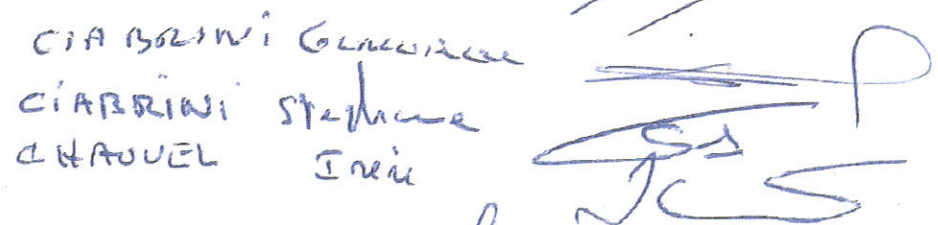 CIABRINI Geneviève
CIABRINI Stephane
CHAUVEL Irène